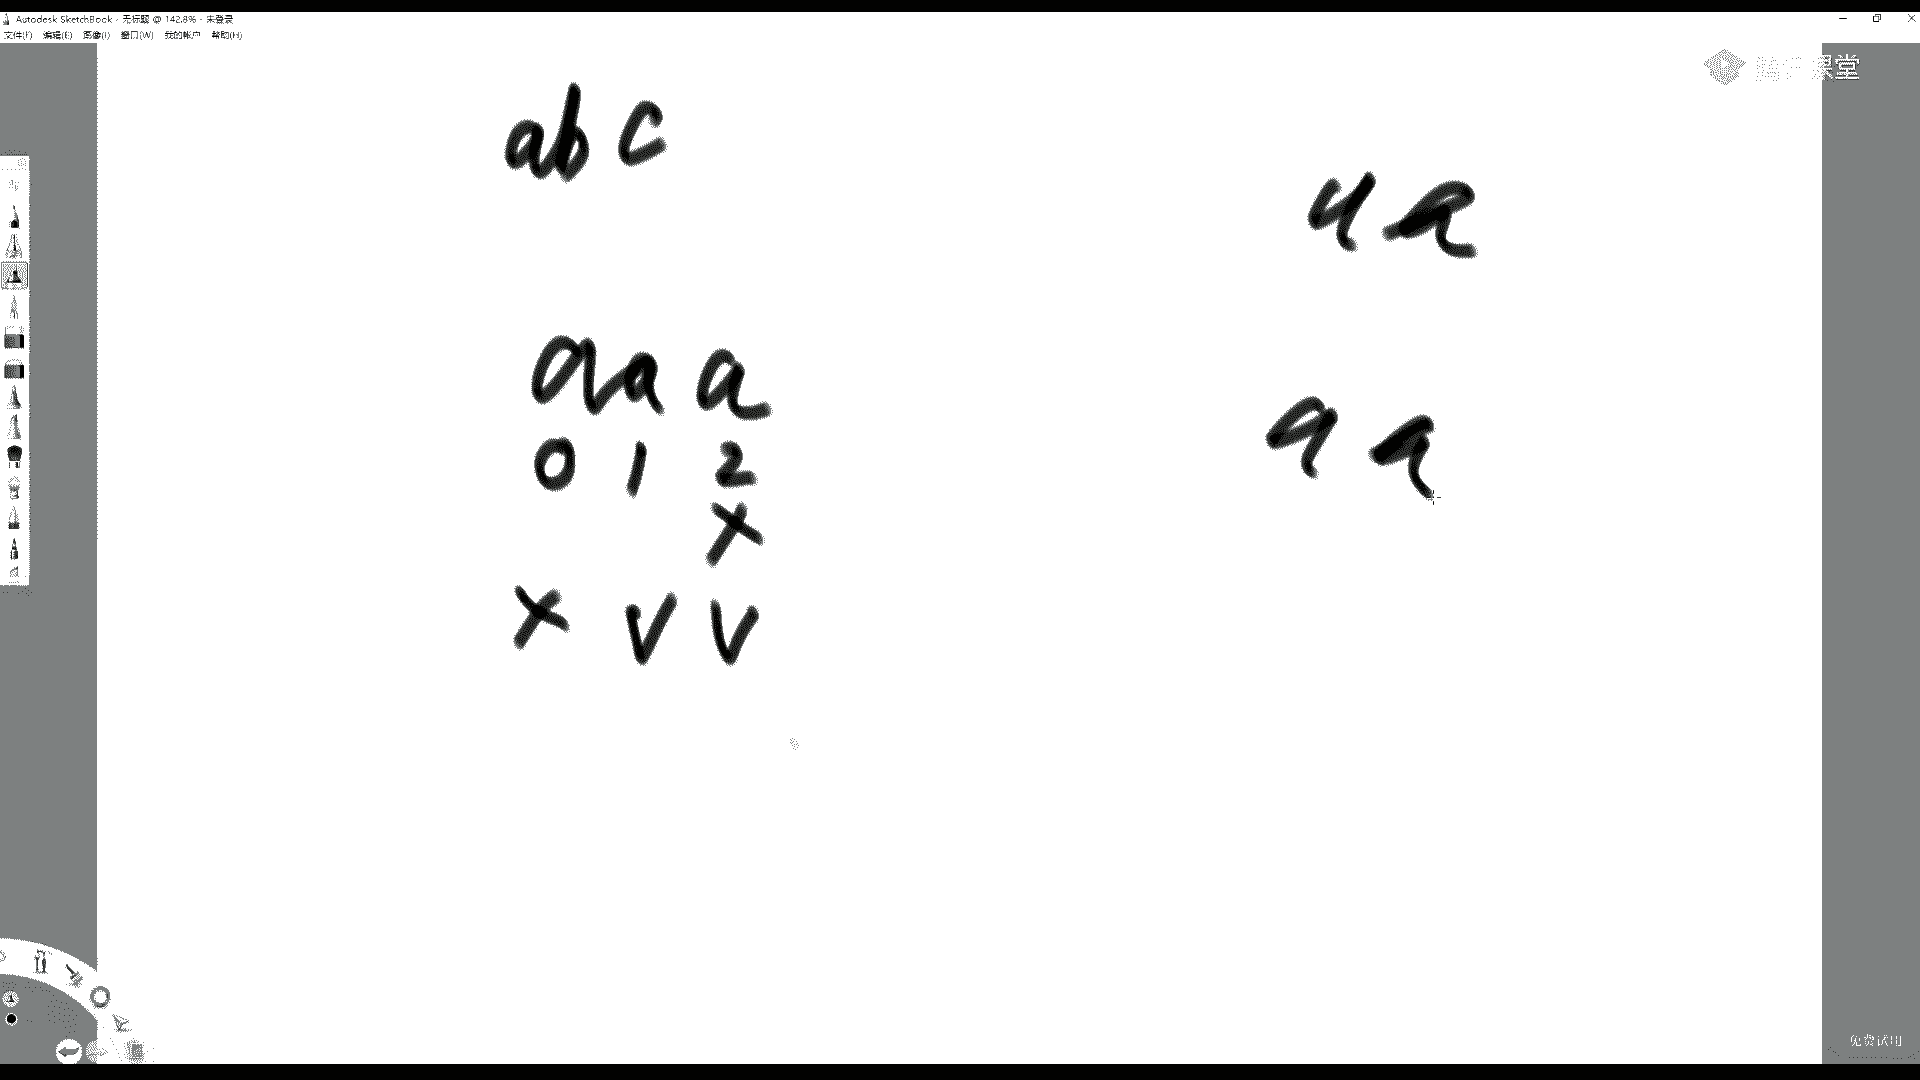 Autodesk SketchBook - 无标题 @ 142.8% - 未登录
文件(F) 编辑(E) 图像(I) 窗口(W) 我的帐户 帮助(H)
腾讯课堂
abc
aa
aaa
012
aa
x
x v v
免费试用